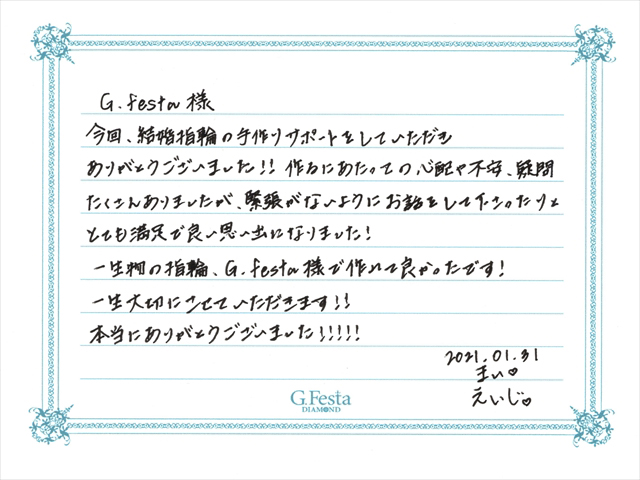 G.festa様
今回、結婚指輪の手作りサポートをしていただき
ありがとうございました!! 作るにあたっての心配や不安、疑問
たくさんありましたが、緊張がないようにお話をして下さったりと
とても満足で良い思い出になりました!
一生物の指輪、G.festa様で作れて良かったです!
一生大切にさせていただきます!!
本当にありがとうございました!!!!!
2021.01.31
まい♡
えいじ♡
G.Festa
DIAMOND